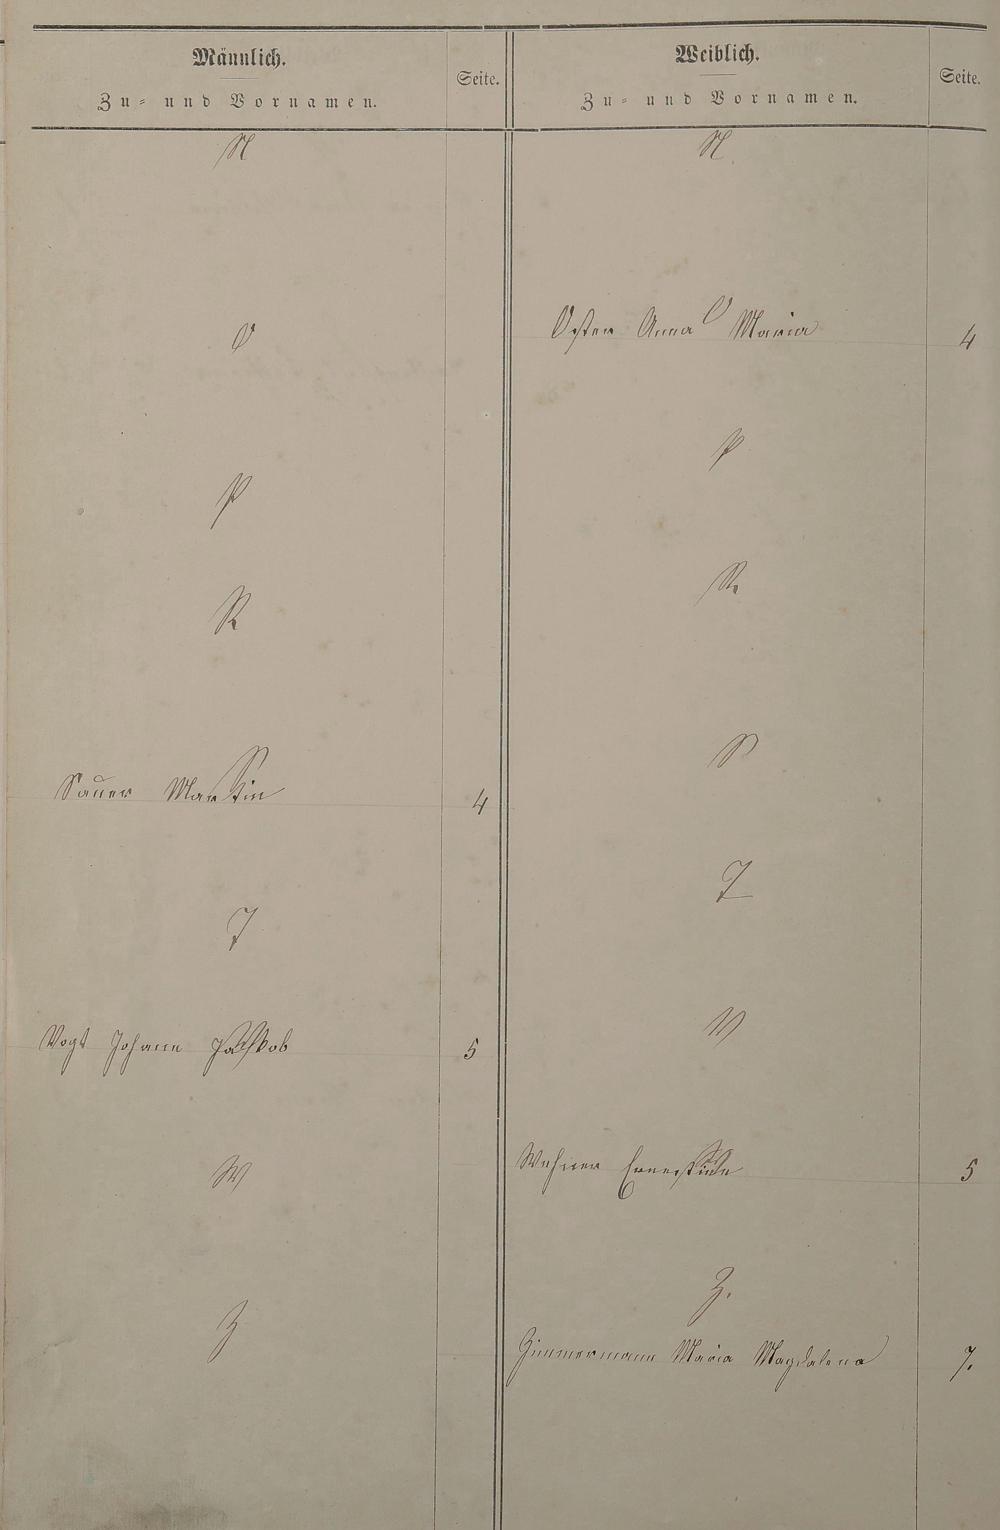 Männlich.
Zu= und Vornamen.
Seite.
N
O
P
R
S
Sauer Martin 4
T
V
Vogt Johann Jakob 5
W
Z
Weiblich.
Zu= und Vornamen.
Seite.
N.
O
Osten Anna Maria 4
P
R.
S
T
V
W
Wehner Ernestine 5
Z.
Zimmermann Maria Magdalena 7.